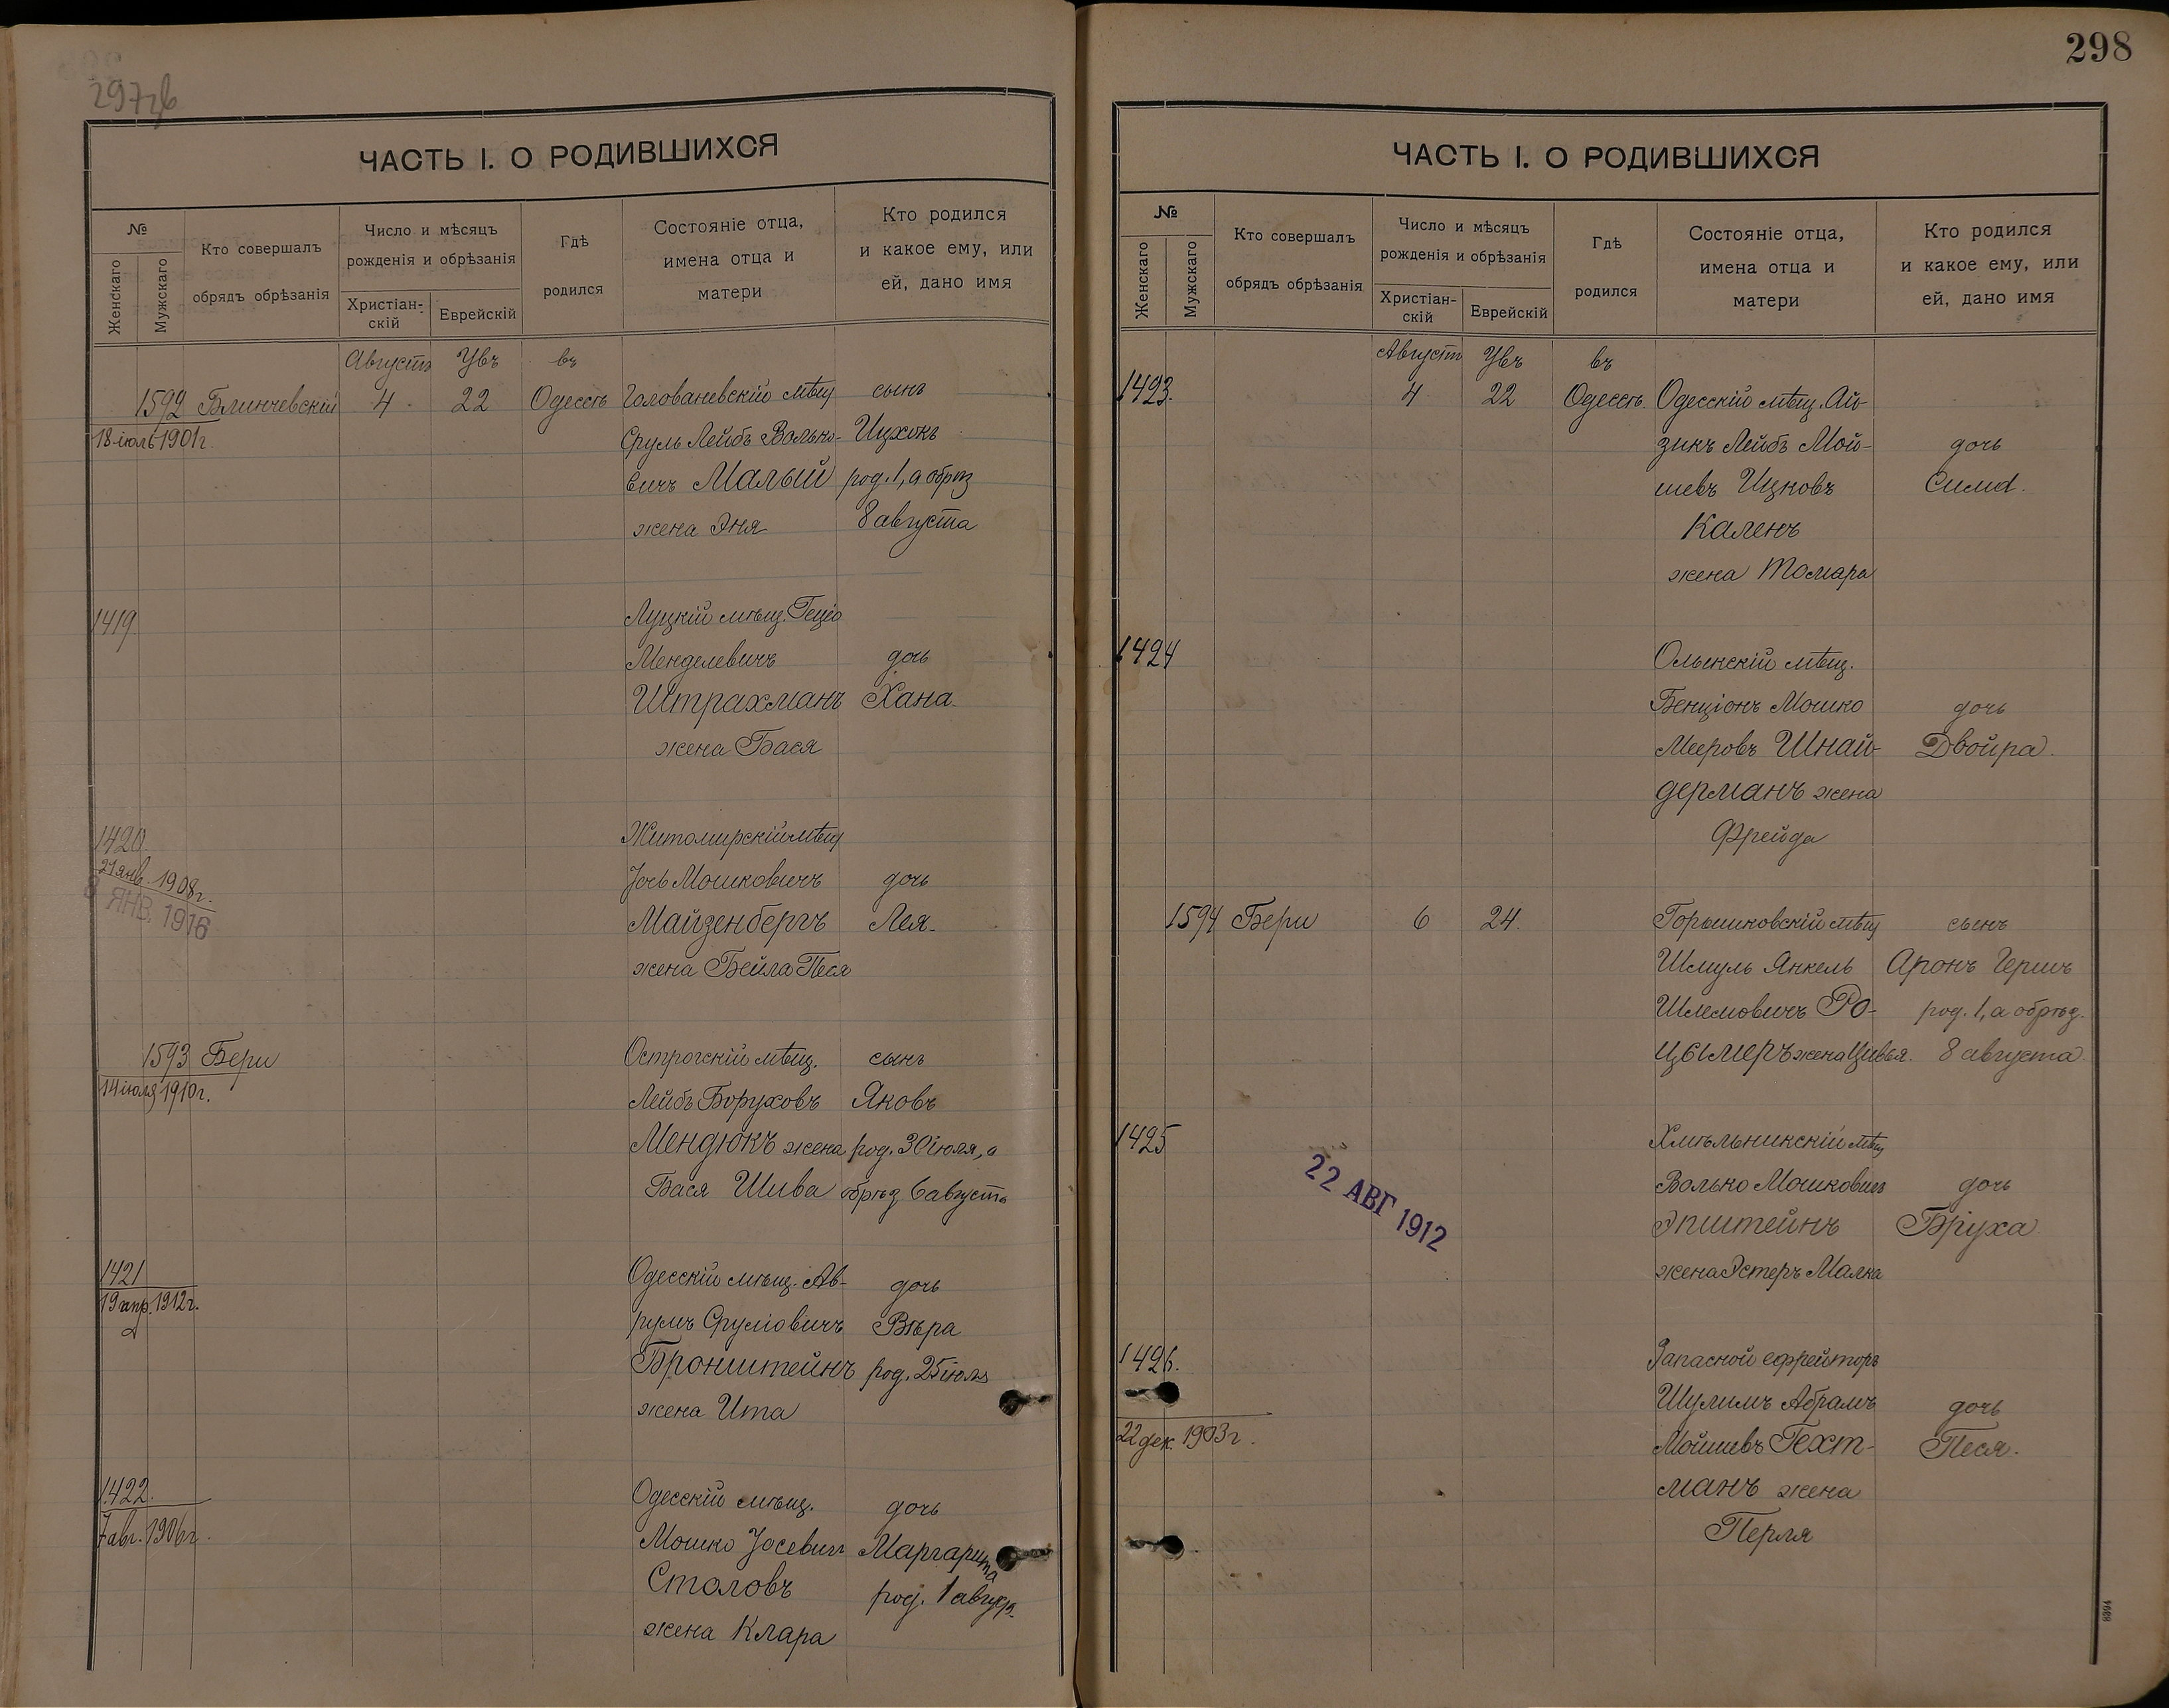 297об
ЧАСТЬ I. О РОДИВШИХСЯ
№
Женскаго
Мужскаго
Кто совершалъ
обрядъ обрѣзанія
Число и мѣсяцъ
рожденія и обрѣзанія
Христіан-
скій
Еврейскій
Гдѣ
родился
Состояніе отца,
имена отца и
матери
Кто родился
и какое ему, или
ей, дано имя
Августъ Увъ въ
1592 Блинчевскій 4 22 Одессѣ Голованевскій мѣщ сынъ
18 іюль 1901г. Сруль Лейбъ Волько- Ицхокъ
вичъ Малый род. 1, а обрѣз
жена Эня 8 августа
1419 Луцкій мѣщ.
Менделевичъ дочь
Штрахманъ Хана
жена Бася
1420 Житомирскій мѣщ
21 янв. 1908г.
8 ЯНВ. 1916
Іось Мошковичъ дочь
Майзенбергъ Лея
жена Бейла Песя
1593 Бери Острогскій мѣщ. сынъ
14 іюля 1910г. Лейбъ Боруховъ Яковъ
Мендюкъ жена род. 30 іюля, а
Бася Шива обрѣз 6 августъ
1421 Одесскій мѣщ. Ав- дочь
19 апр. 1912г. румъ Сруліовичъ Вѣра
Бронштейнъ род. 25 іюля
жена Ита
1422 Одесскій мѣщ. дочь
7 авг. 1906г. Мошко Іосевич Маргарита
Столовъ род. 1 август.
жена Клара
298
ЧАСТЬ I. О РОДИВШИХСЯ
№
Женскаго
Мужскаго
Кто совершалъ
обрядъ обрѣзанія
Число и мѣсяцъ
рожденія и обрѣзанія
Христіан-
скій
Еврейскій
Гдѣ
родился
Состояніе отца,
имена отца и
матери
Кто родился
и какое ему, или
ей, дано имя
Августъ Увъ въ
1493. 4 22 Одессѣ Одесскій мѣщ. Ай-
зикъ Лейбъ Мой- дочь
шевъ Ицковъ Сима.
Каленъ
жена Томара
1424 мѣщ.
Бенціонъ Мошко дочь
Мееровъ Шнай- Двойра.
дерманъ жена
Фрейда
1594 Бери 6 24 Горышковскій мѣщ сынъ
Шмуль Янкель Аронъ Гершъ
Шлемовичъ Ро- род. 1, а обрѣз.
цымеръ жена Цивья. 8 августа
1425 Хмѣльникскій мѣщ
22 АВГ 1912
Волько Мошковичъ дочь
Эпштейнъ Бруха
жена Эстеръ Малка
1426. Запасной ефрейторъ
Шулимъ Абрамъ дочь
22 дек. 1903г. Мойшевъ Гехт- Песя.
манъ жена
Перля
8394